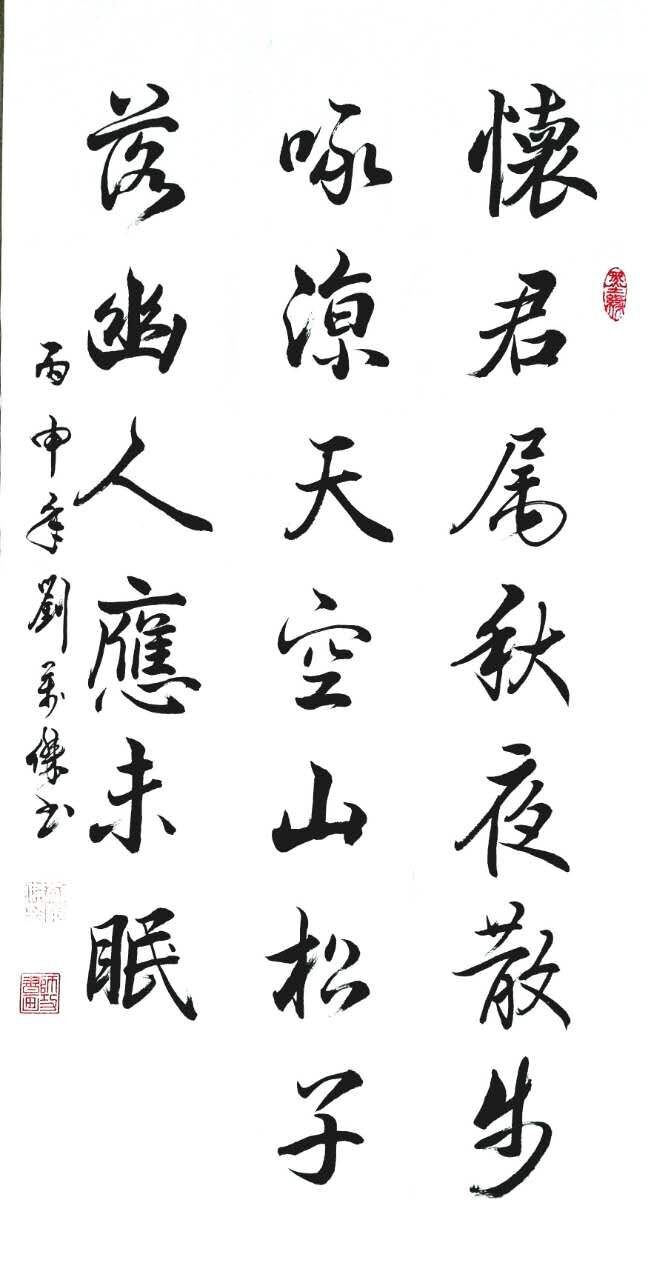 懷君属秋夜散步
咏涼天空山松子
落幽人應未眠
丙申年劉萬傑书